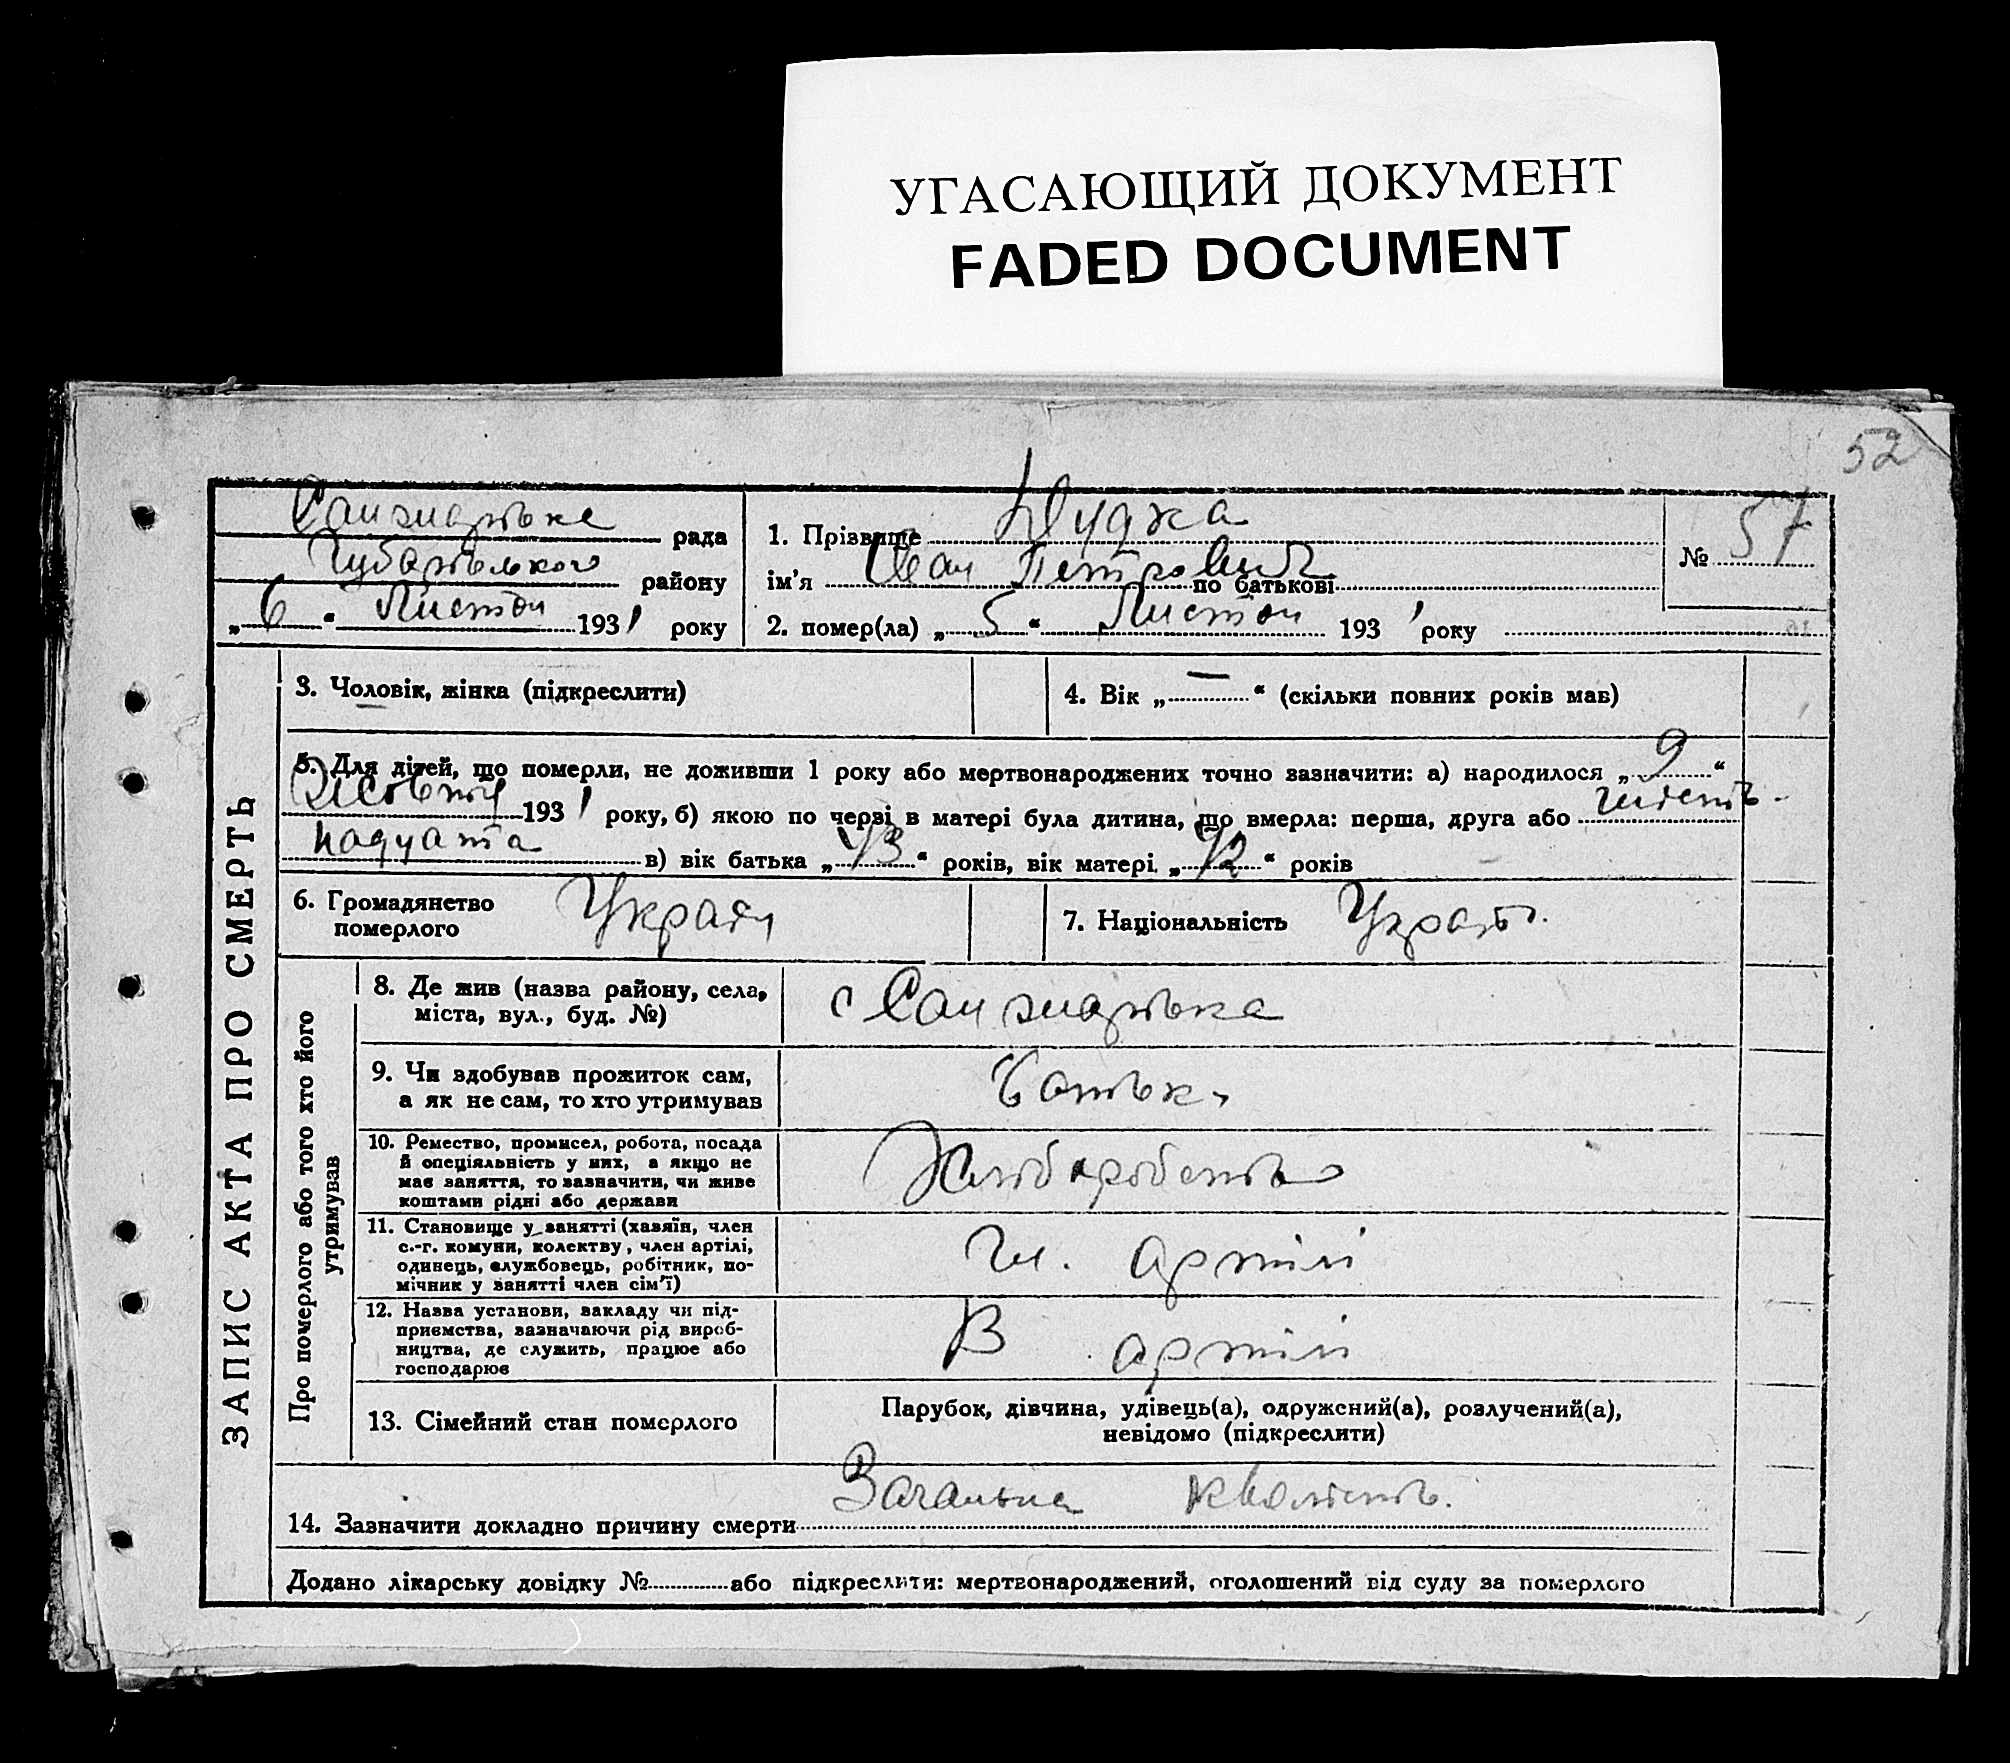 УГАСАЮЩИЙ ДОКУМЕНТ
FADED DOCUMENT
52
рада
району
„ 6 “ Листоп 1931 року
1. Прізвище Дудка
ім'я Іван Петрович по батькові
2. помер(ла) „ 5 “ Листоп 1931 року
№ 57
ЗАПИС АКТА ПРО СМЕРТЬ
3. Чоловік, жінка (підкреслити)
4. Вік „ — “ (скільки повних років мав)
5. Для дітей, що померли, не доживши 1 року або мертвонароджених точно зазначити: а) народилося „ 9 “
1931 року, б) якою по черві в матері була дитина, що вмерла: перша, друга або
надцята в) вік батька „ 43 “ років, вік матері „ 42 “ років
6. Громадянство
померлого
7. Національність
Про померлого або того хто його
утримував
8. Де жив (назва району, села,
міста, вул., буд. №)
9. Чи здобував прожиток сам,
а як не сам, то хто утримував
Батьк
10. Ремество, промисел, робота, посада
й спеціяльність у них, а якщо не
має заняття, то зазначити, чи живе
коштами рідні або держави
11. Становище у занятті (хазяїн, член
с.-г. комуни, колектву, член артілі,
одинець, службовець, робітник, по-
мічник у занятті член сім'ї)
чл. артілі
12. Назва установи, закладу чи під-
приємства, зазначаючи рід вироб-
ництва, де служить, працює або
господарює
В артілі
13. Сімейний стан померлого
Парубок, дівчина, удівець(а), одружений(а), розлучений(а),
невідомо (підкреслити)
14. Зазначити докладно причину смерти Загальна
Додано лікарську довідку № або підкреслити: мертвонароджений, оголошений від суду за померлого